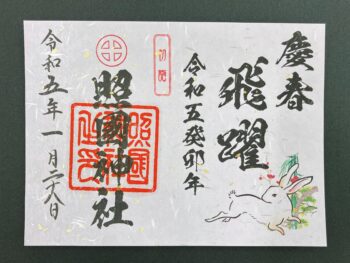 慶春
飛躍
令和五癸卯年
照國神社
令和五年一月二十八日